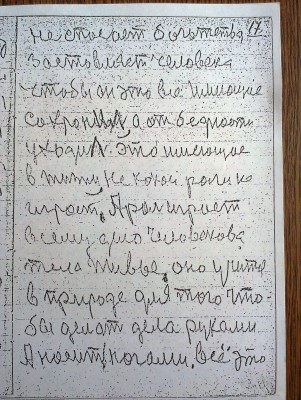 не стоает богатства 17
заставляет человека
чтобы он это всё имющие
сохронил а от бедности
уходил. Это имеющое
в жизни не какой роли не
играет. А рол играет
всему дело человеково
тела живое, оно учится
в природе для того что-
бы делат дела руками
А ноеит ногами. всё это